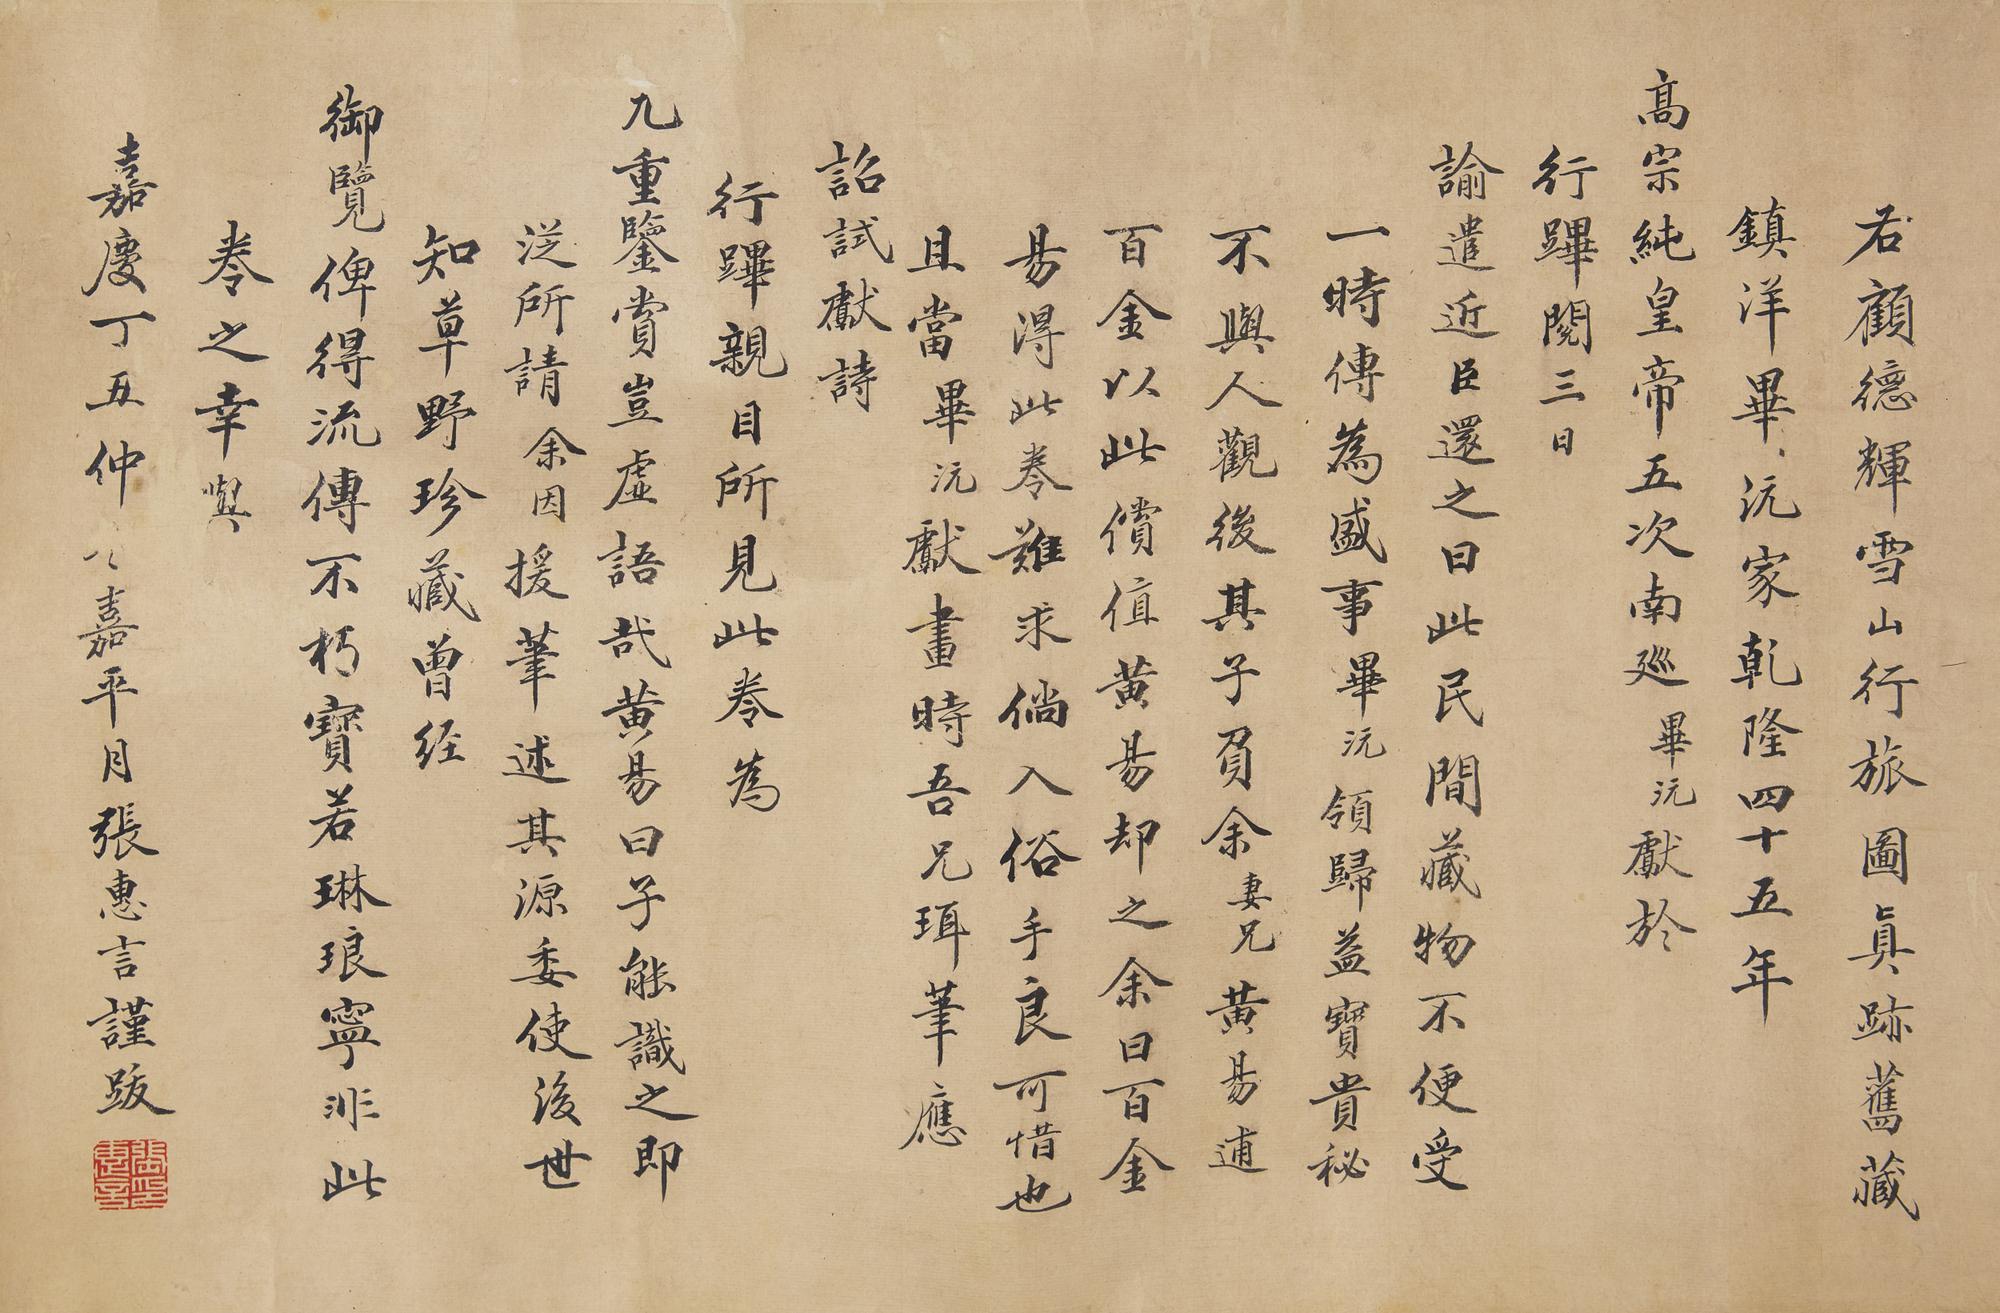 右顧德輝雪山行旅圖眞跡舊藏
鎮洋畢沅家乾隆四十五年
高宗純皇帝五次南廵畢沅獻於
行蹕閱三日
諭遣近臣還之曰此民間藏物不便受
一時傳為盛事畢沅領歸益寶貴秘
不與人觀後其子貧余妻兄黃易逋
百金以此償值黃易却之余曰百金
易得此卷難求倘入俗手良可惜也
且當畢沅獻畫時吾兄珥筆應
詔試獻詩
行蹕親目所見此卷為
九重鑒賞豈虛語哉黃易曰子能識之即
泛所請余因援筆述其源委使後世
知草野珍藏曾经
御覽俾得流傳不朽寶若琳琅寧非此
卷之幸與
嘉慶丁五仲嘉平月張惠言謹跋